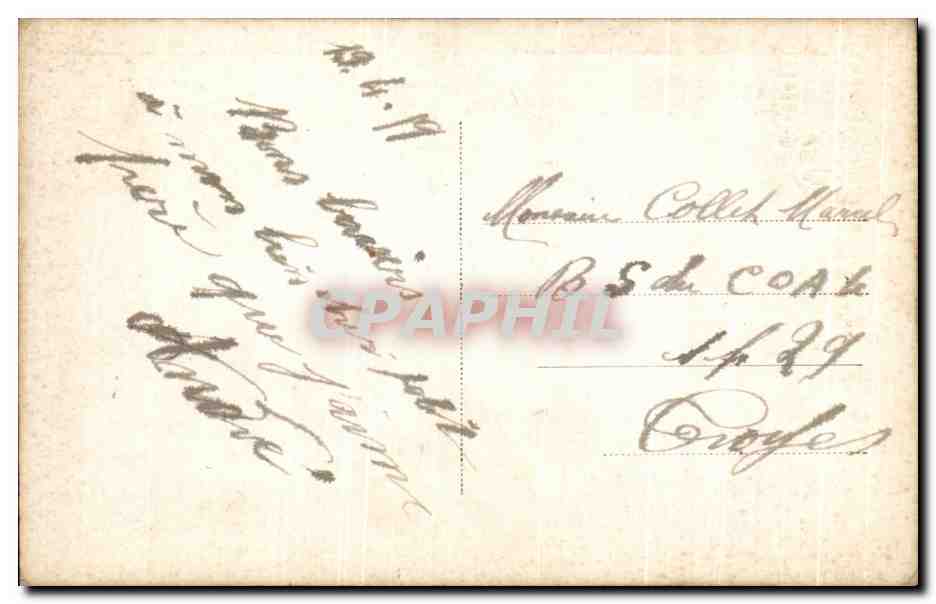 19.4.19
Bons baisers
à mon très très petit
frère que j'aime
André
Monsieur Collet Marcel
B S du C O A le
29
Troyes
CPAPHIL